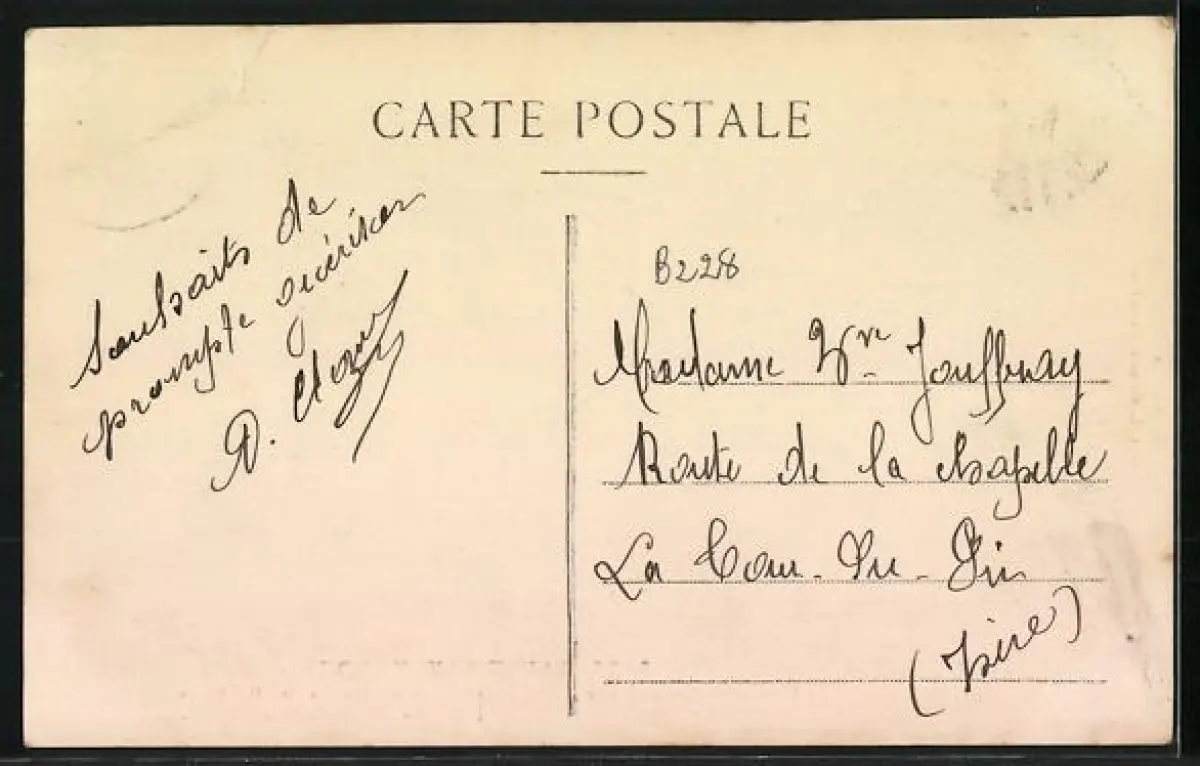 CARTE POSTALE
Souhaits de
prompte guérison
B228
Madame Vve Jouffray
Route de la chapelle
La Tour-Du-Pin
(Isère)